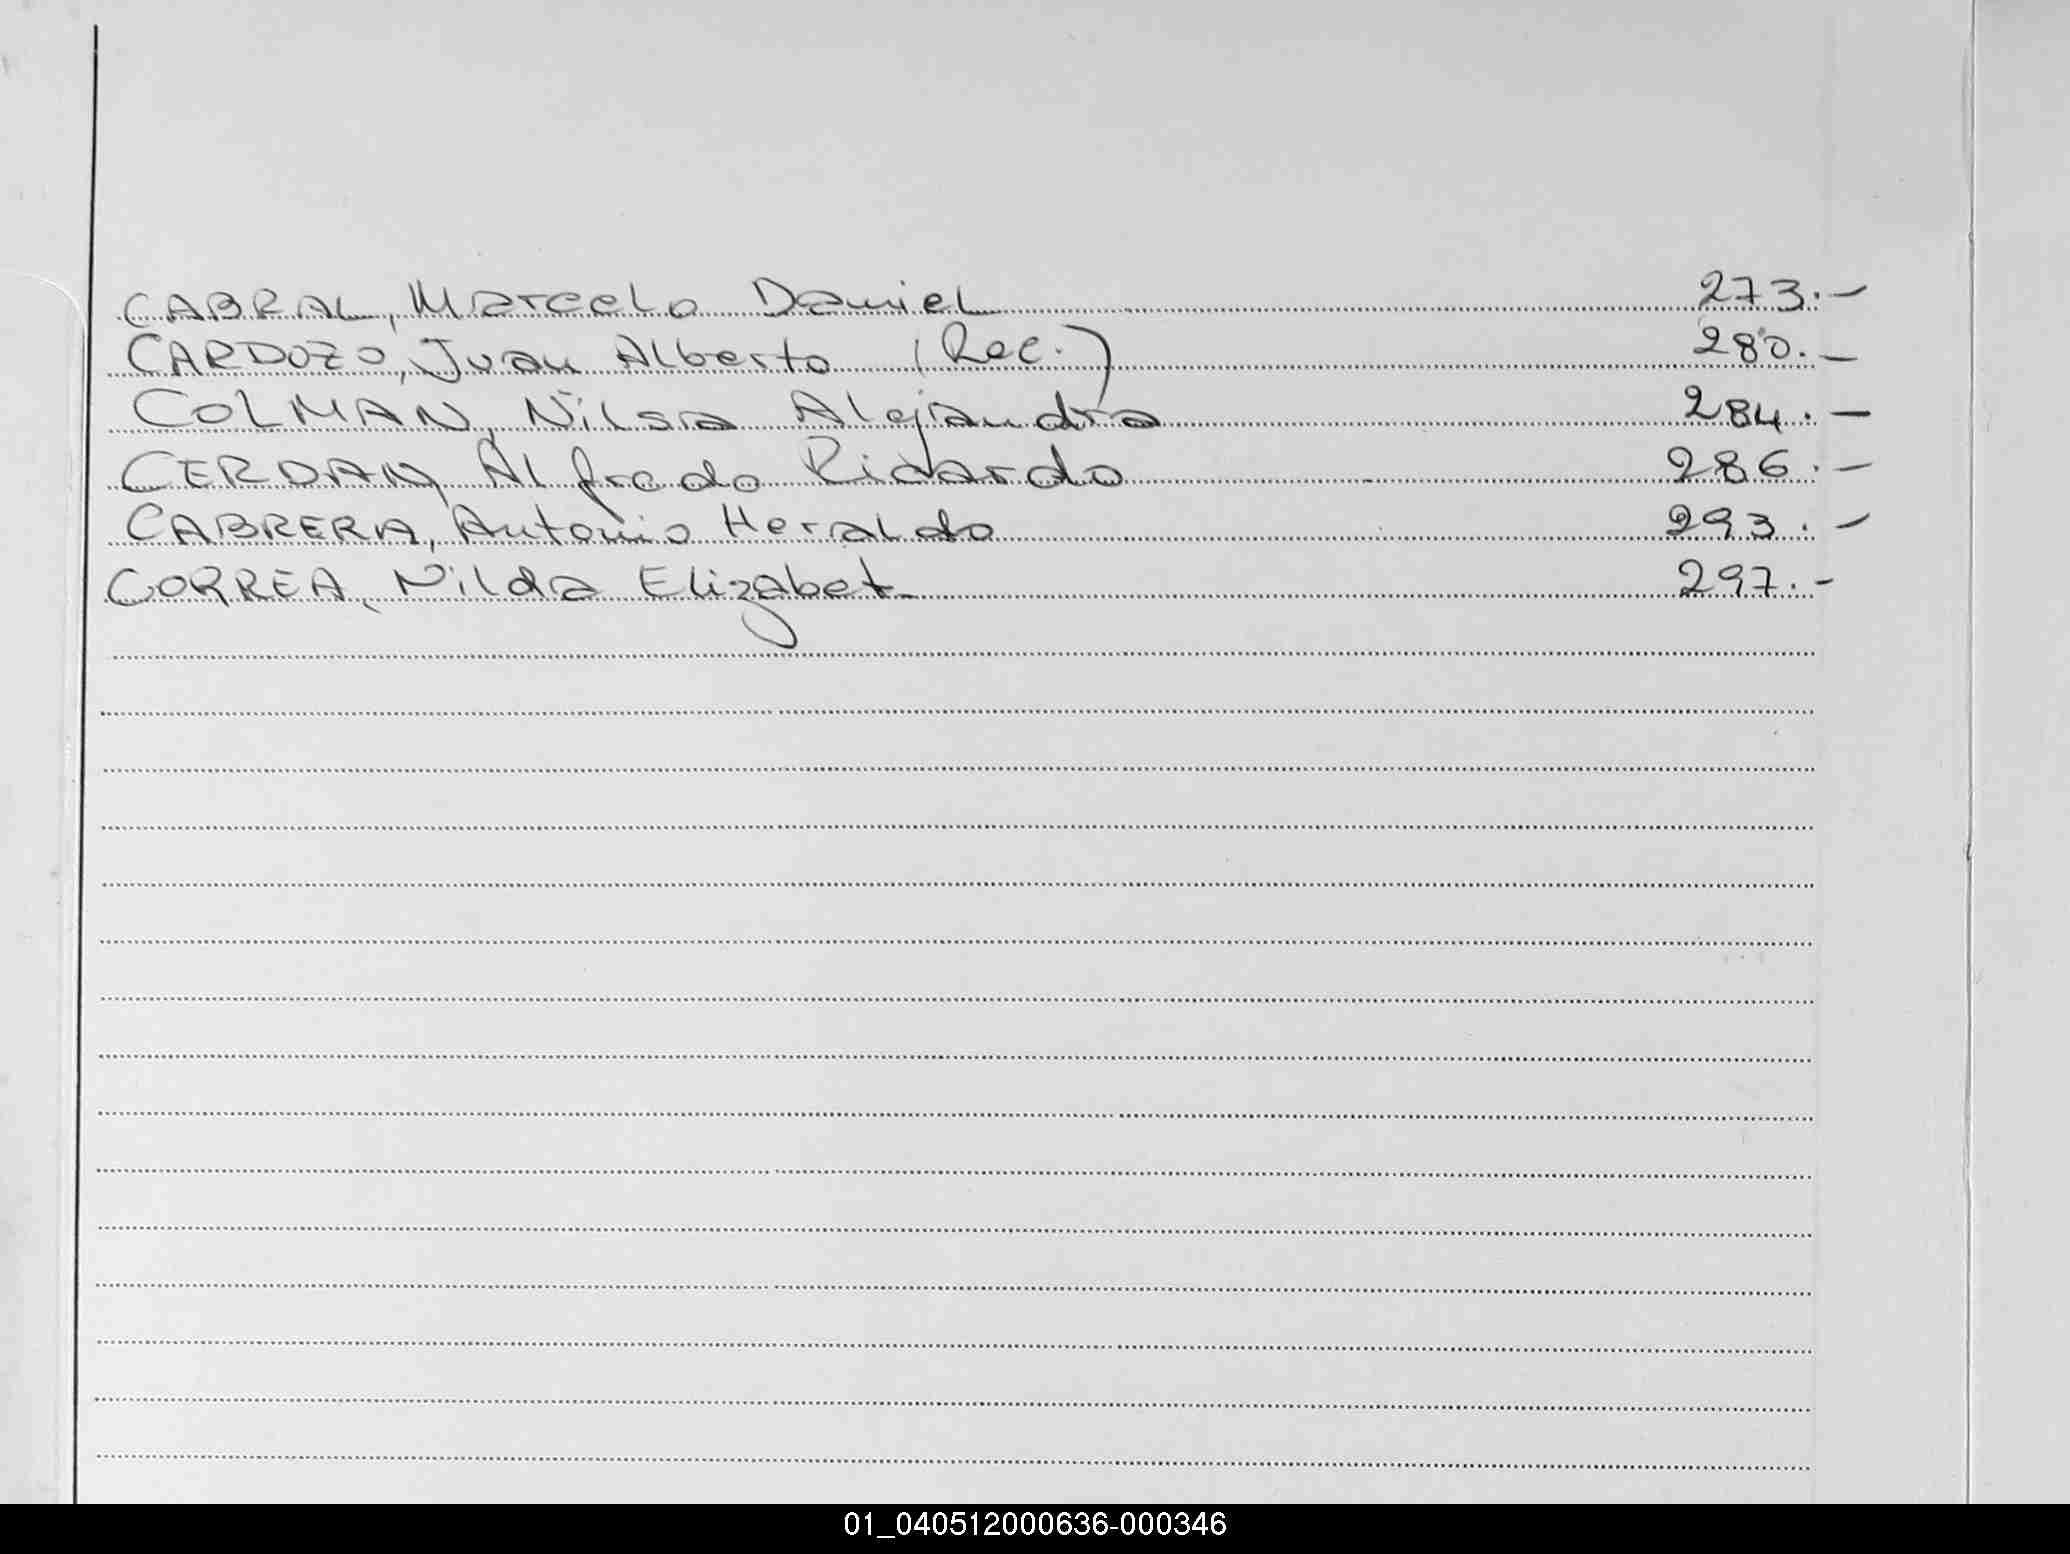 CABRAL, Marcelo Daniel 273.-
CARDOZO, Juan Alberto (Rec.) 280.-
COLMAN, Nilsa Alejandra 284.-
CERDAN, Alfredo Ricardo 286.-
CABRERA, Antonio Heraldo 293.-
CORREA, Nilda Elizabet 297.-
01_040512000636-000346